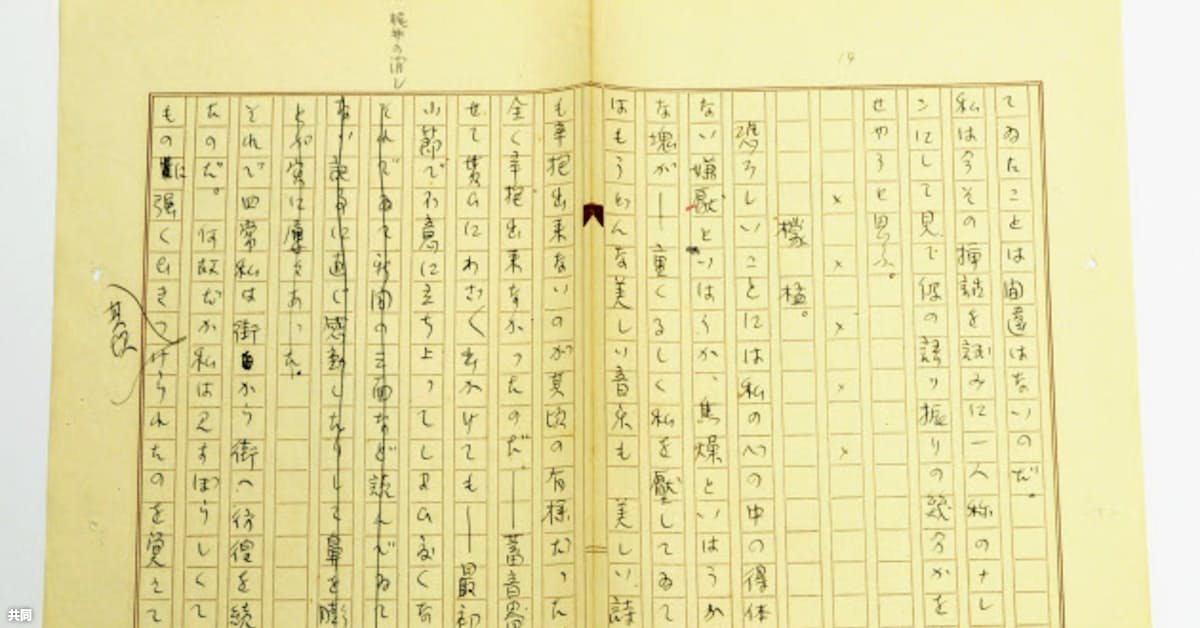 梶井の消し
19
てゐたことは間違はないのだ。
私は今その挿話を試みに一人称のナレ
ンにして見て彼の語り振りの幾分かを
せやうと思ふ。
× × × × ×
檬檸。
恐ろしいことには私の心の中の得体
ない嫌厭といはうか、焦燥といはうか
な塊が――重くるしく私を壓してゐて
はもうどんな美しい音楽も 美しい詩
も辛抱出来ないのが其頃の有様だった
全く辛抱出来なかったのだ。――蓄音器
せて貰ひにわざ〱出かけても――最初
小節で不意に立ち上ってしまひ度くな
それでゐて新聞の三面など読んでゐて
ない記事に直ぐ感動したりして鼻を膨
とが実に屢々あった。
それで四六時中私は街から街へ彷徨を続
たのだ。何故だか私は見すぼらしくて
ものに強くひきつけられたのを覚えて
其頃
共同